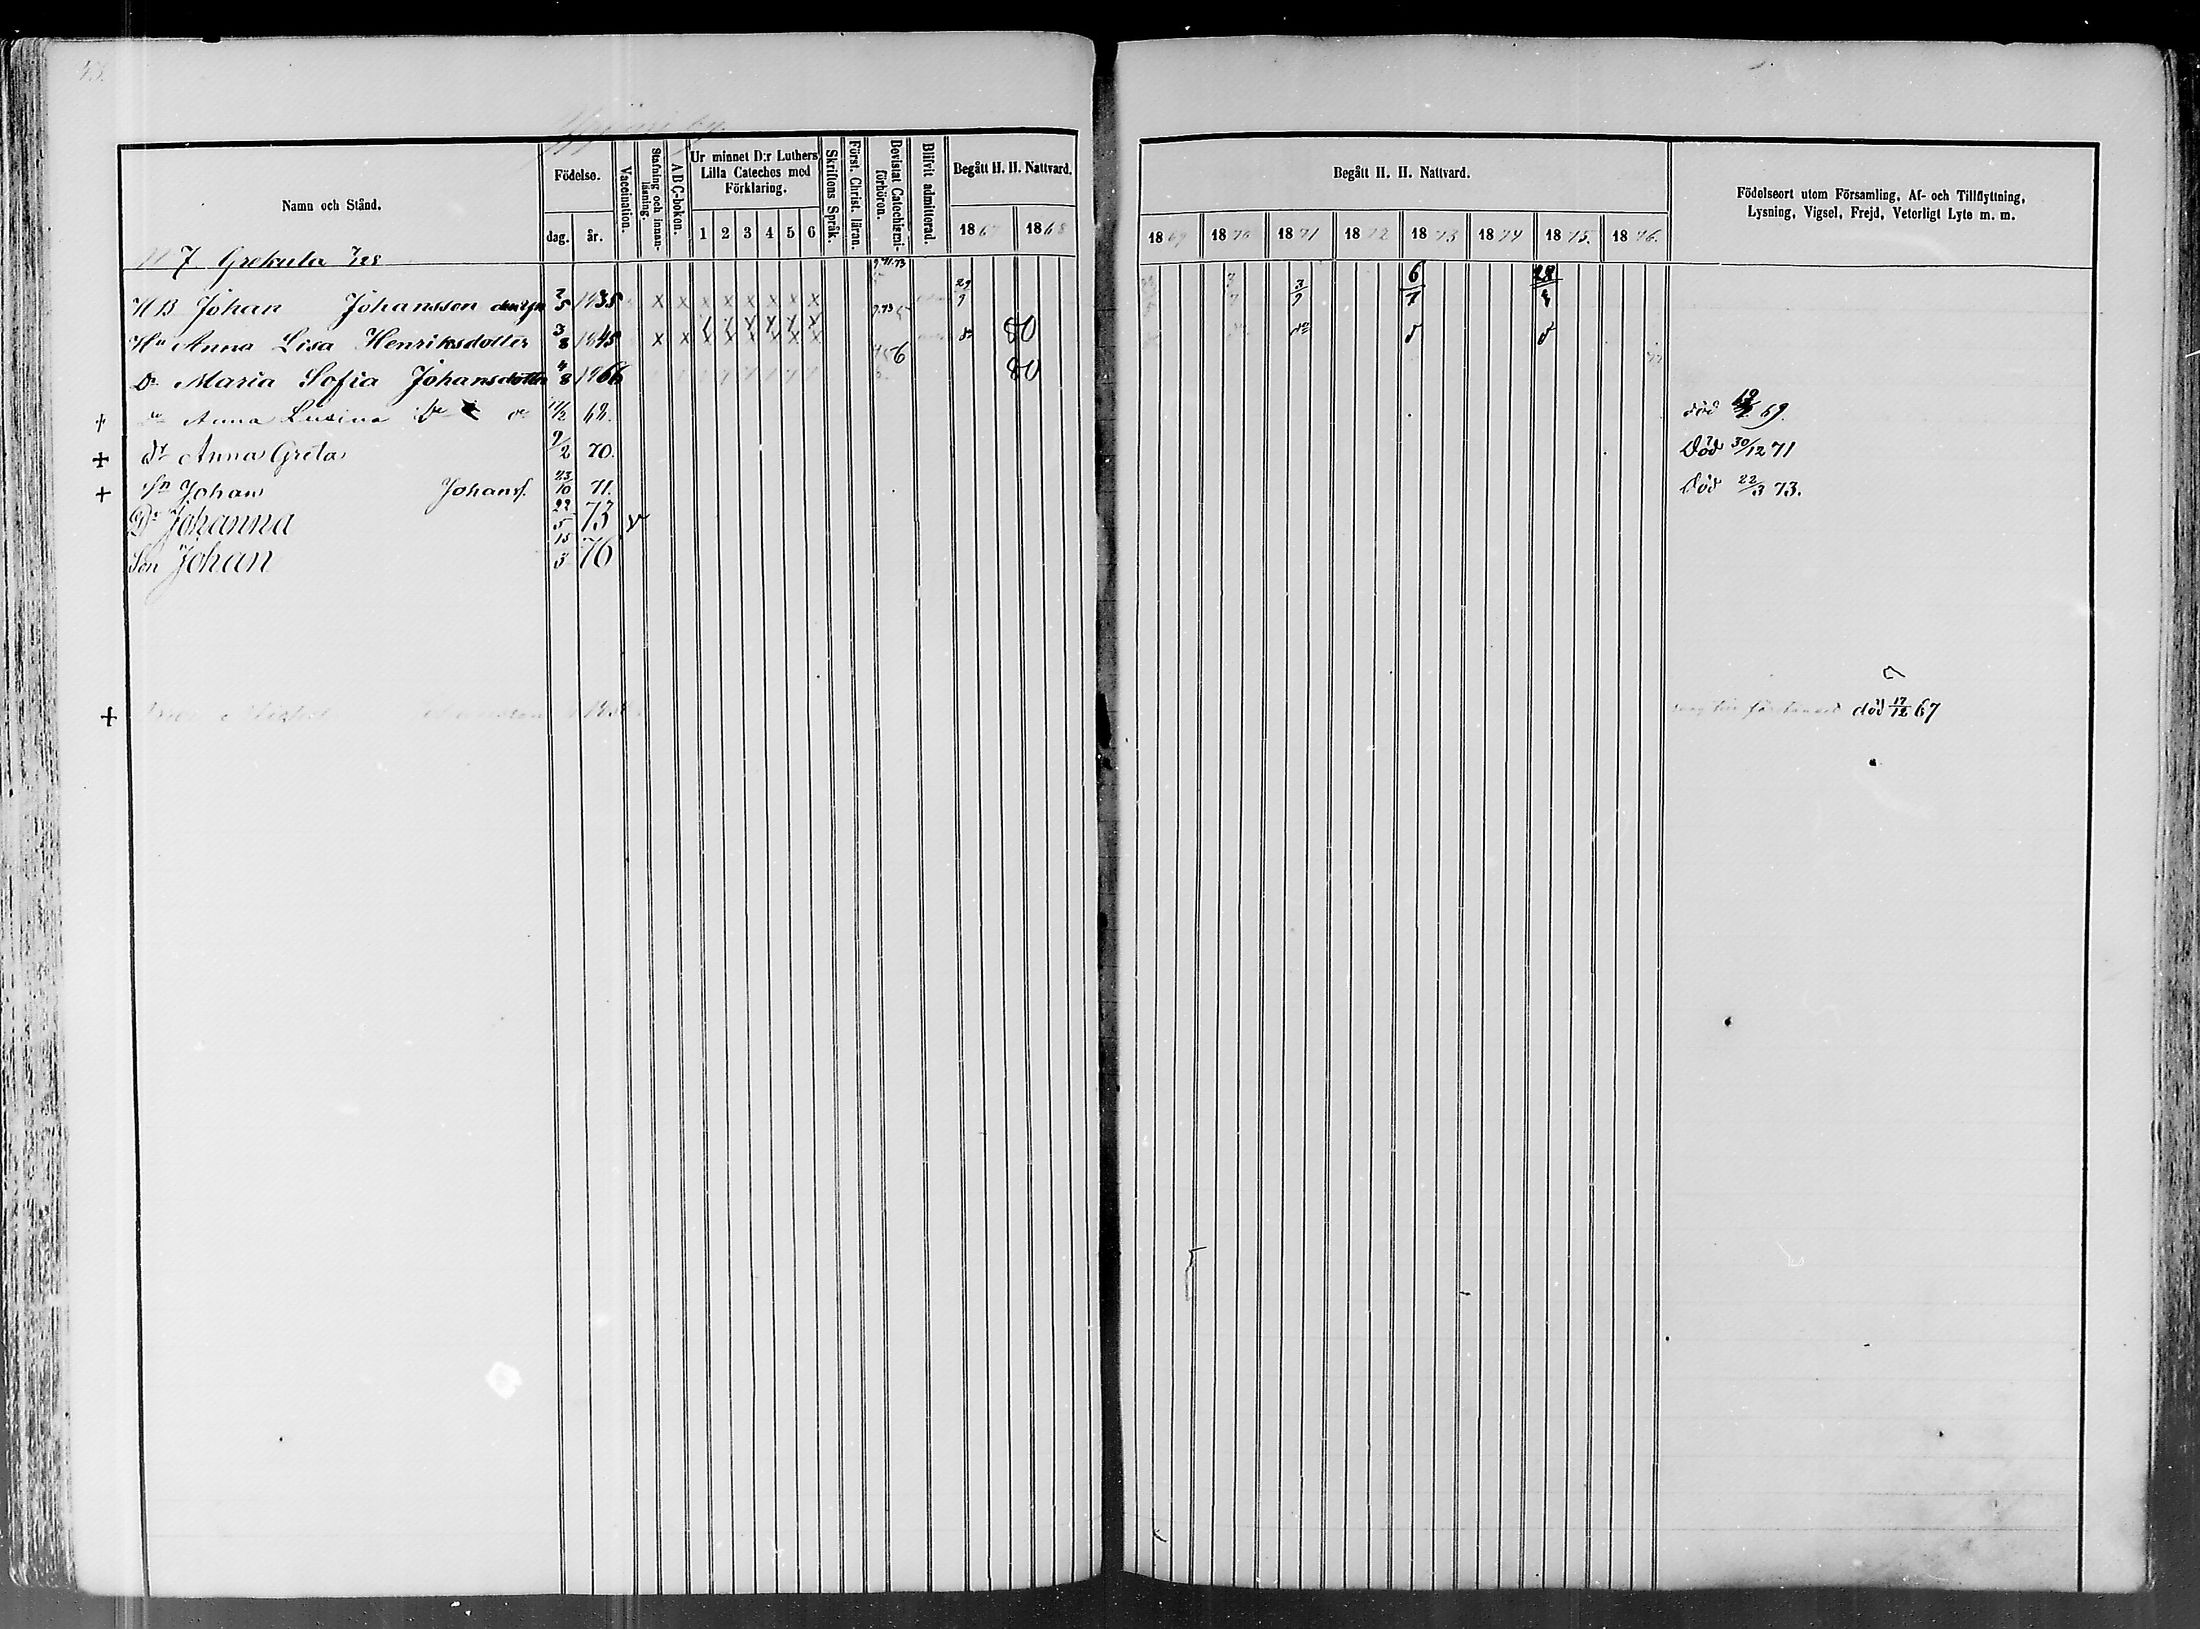 Namn och Stånd.
Födelse.
dag.
år.
Vaccination.
Stafning och innanläsning.
A B C-boken.
Ur minnet D:r Luthers Lilla Cateches med Förklaring.
1 2 3 4 5 6
Skriftens Språk.
Först. Christ. läran.
Bevistat Catechismi-förhören.
Blifvit admitterad.
Begått H. H. Nattvard.
1867 1868
Begått H. H. Nattvard.
1869 1870 1871 1872 1873 1874 1875. 1876.
Födelseort utom Församling, Af- och Tillflyttning, Lysning, Vigsel, Frejd, Veterligt Lyte m. m.
7 Grekula
HB Johan Johansson 2/5 1835 x x x x x x x x 29/9 3/9 6/7
Hu Anna Lisa Henriksdotter 3/8 1845 x x
Dr Maria Sofia Johansdotter 4/8 1866
+ Anna Lusina 68. död 69.
+ dr Anna Greta 9/2 70. Död 30/12 71
+ Sn Johan Johanss. 23/10 71. Död 22/3 73.
Dr Johanna 22/5 73 v
Son Johan 15/3 76
+ död 17/12 67